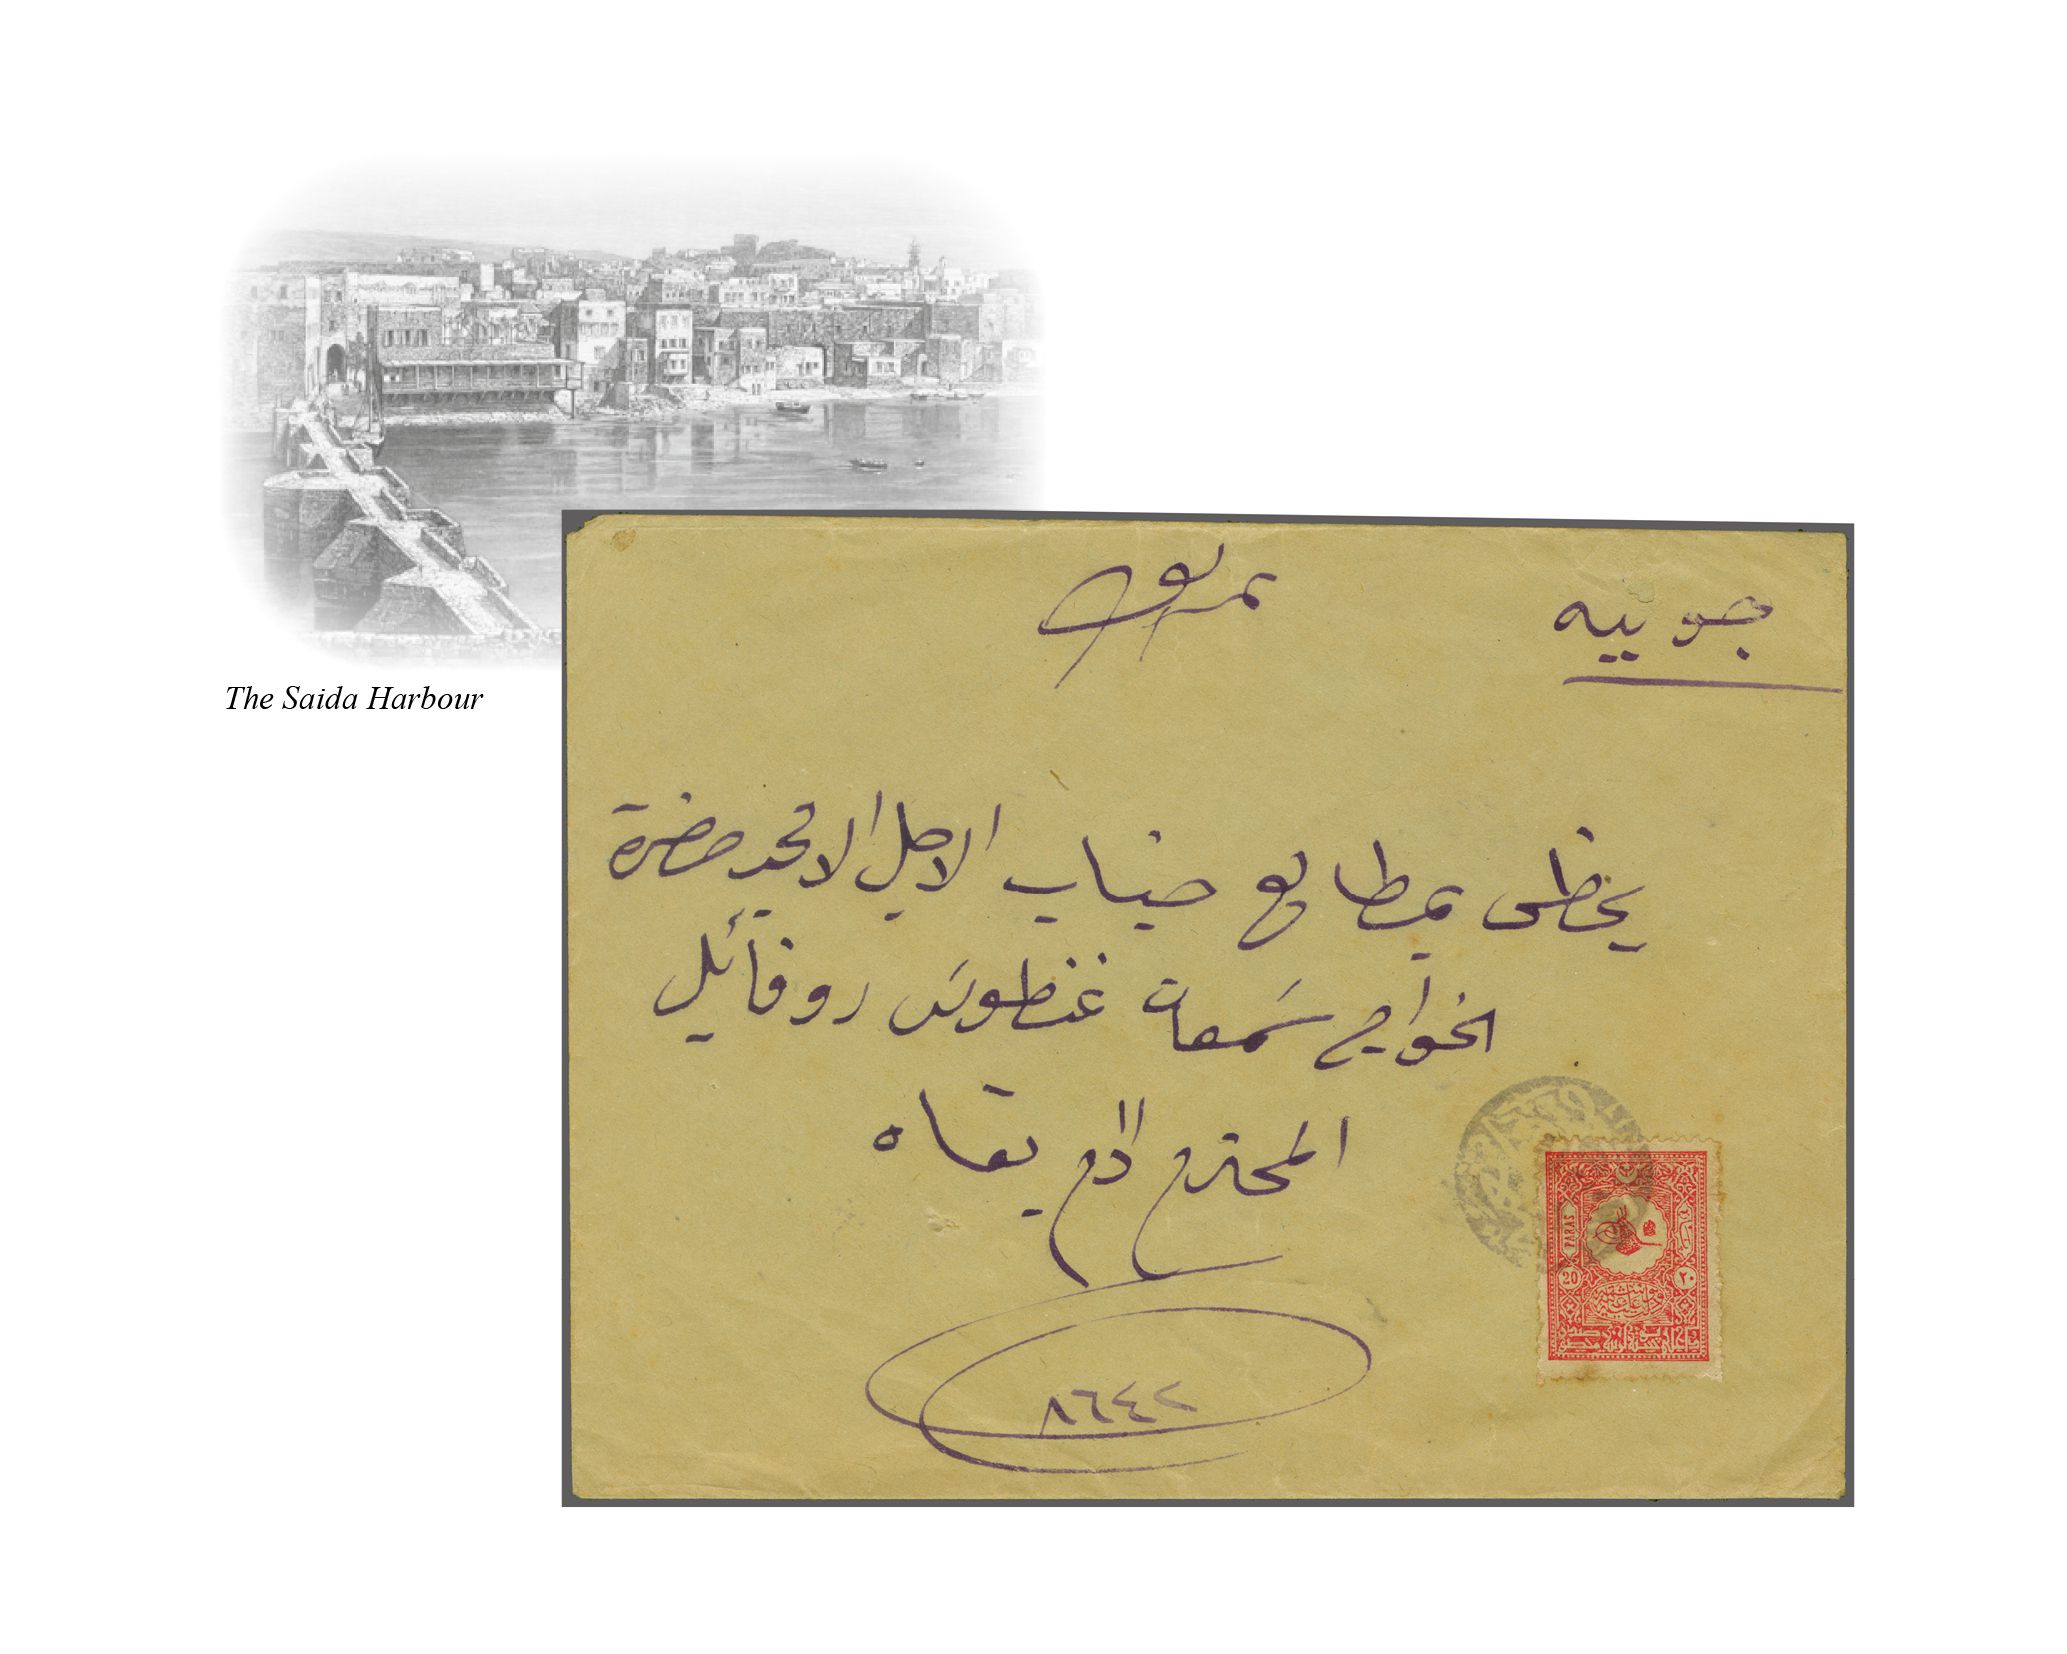 The Saida Harbour
جونيه
يحظى بمطالع جناب الاجل الامجد حضرة
الخواجه سمعان غنطوس روفائيل
المحترم دام بقاه
٨٦٤٢
PARAS
20 ٢٠